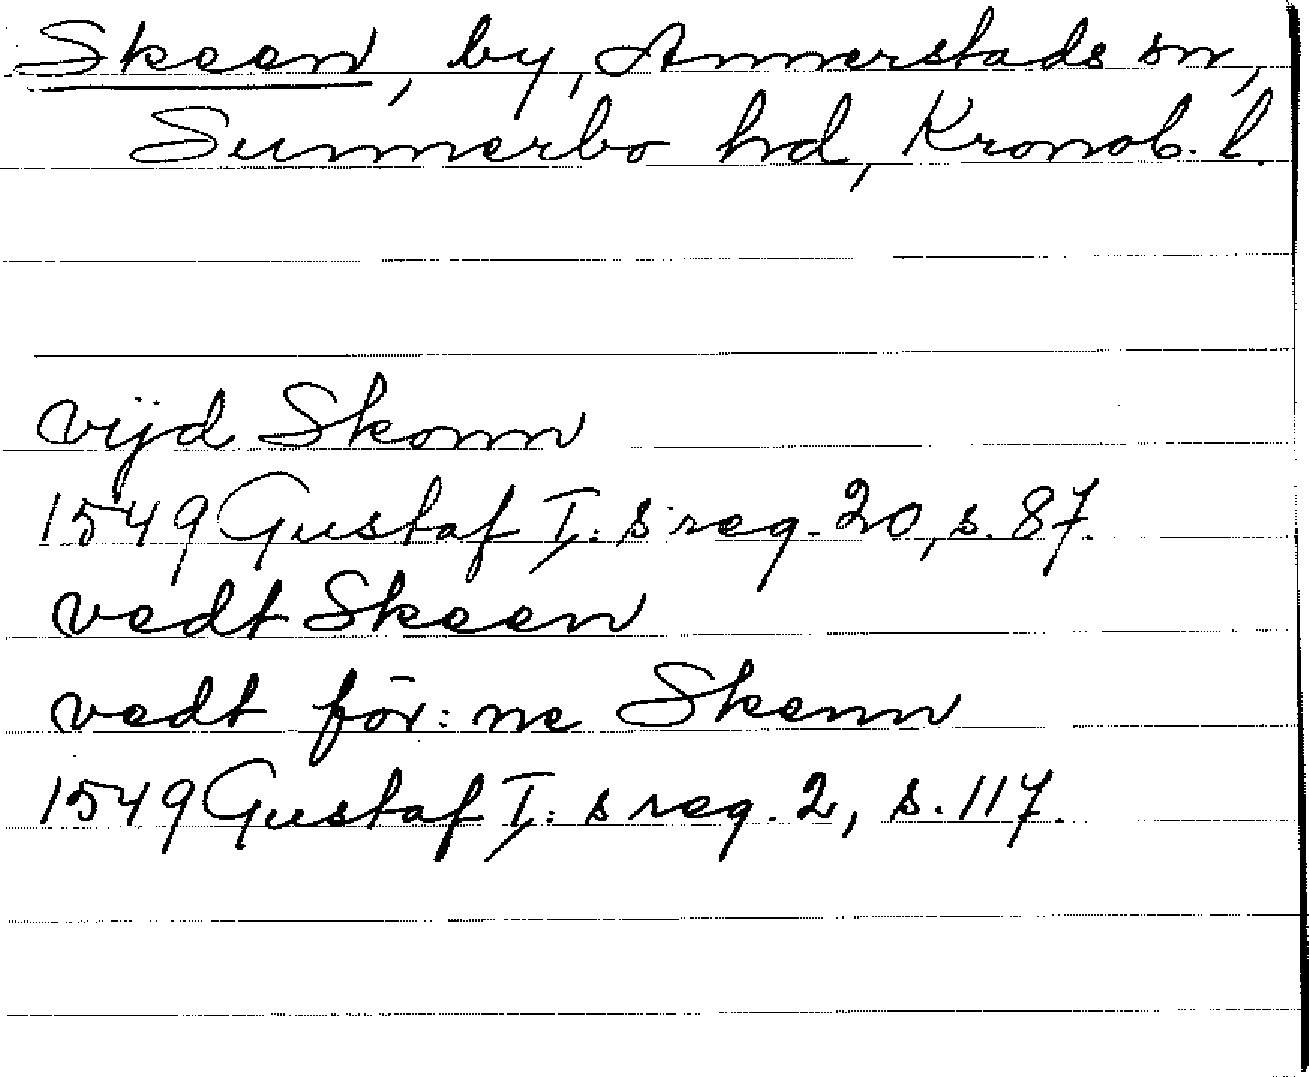 Skeen, by, Annerstads sn,
Sunnerbo hd, Kronob. l.
vijd Skonn
1549 Gustaf I:s reg. 20, s. 87.
vedt Skeen
vedt för:ne Skenn
1549 Gustaf I:s reg. 2, s. 117.